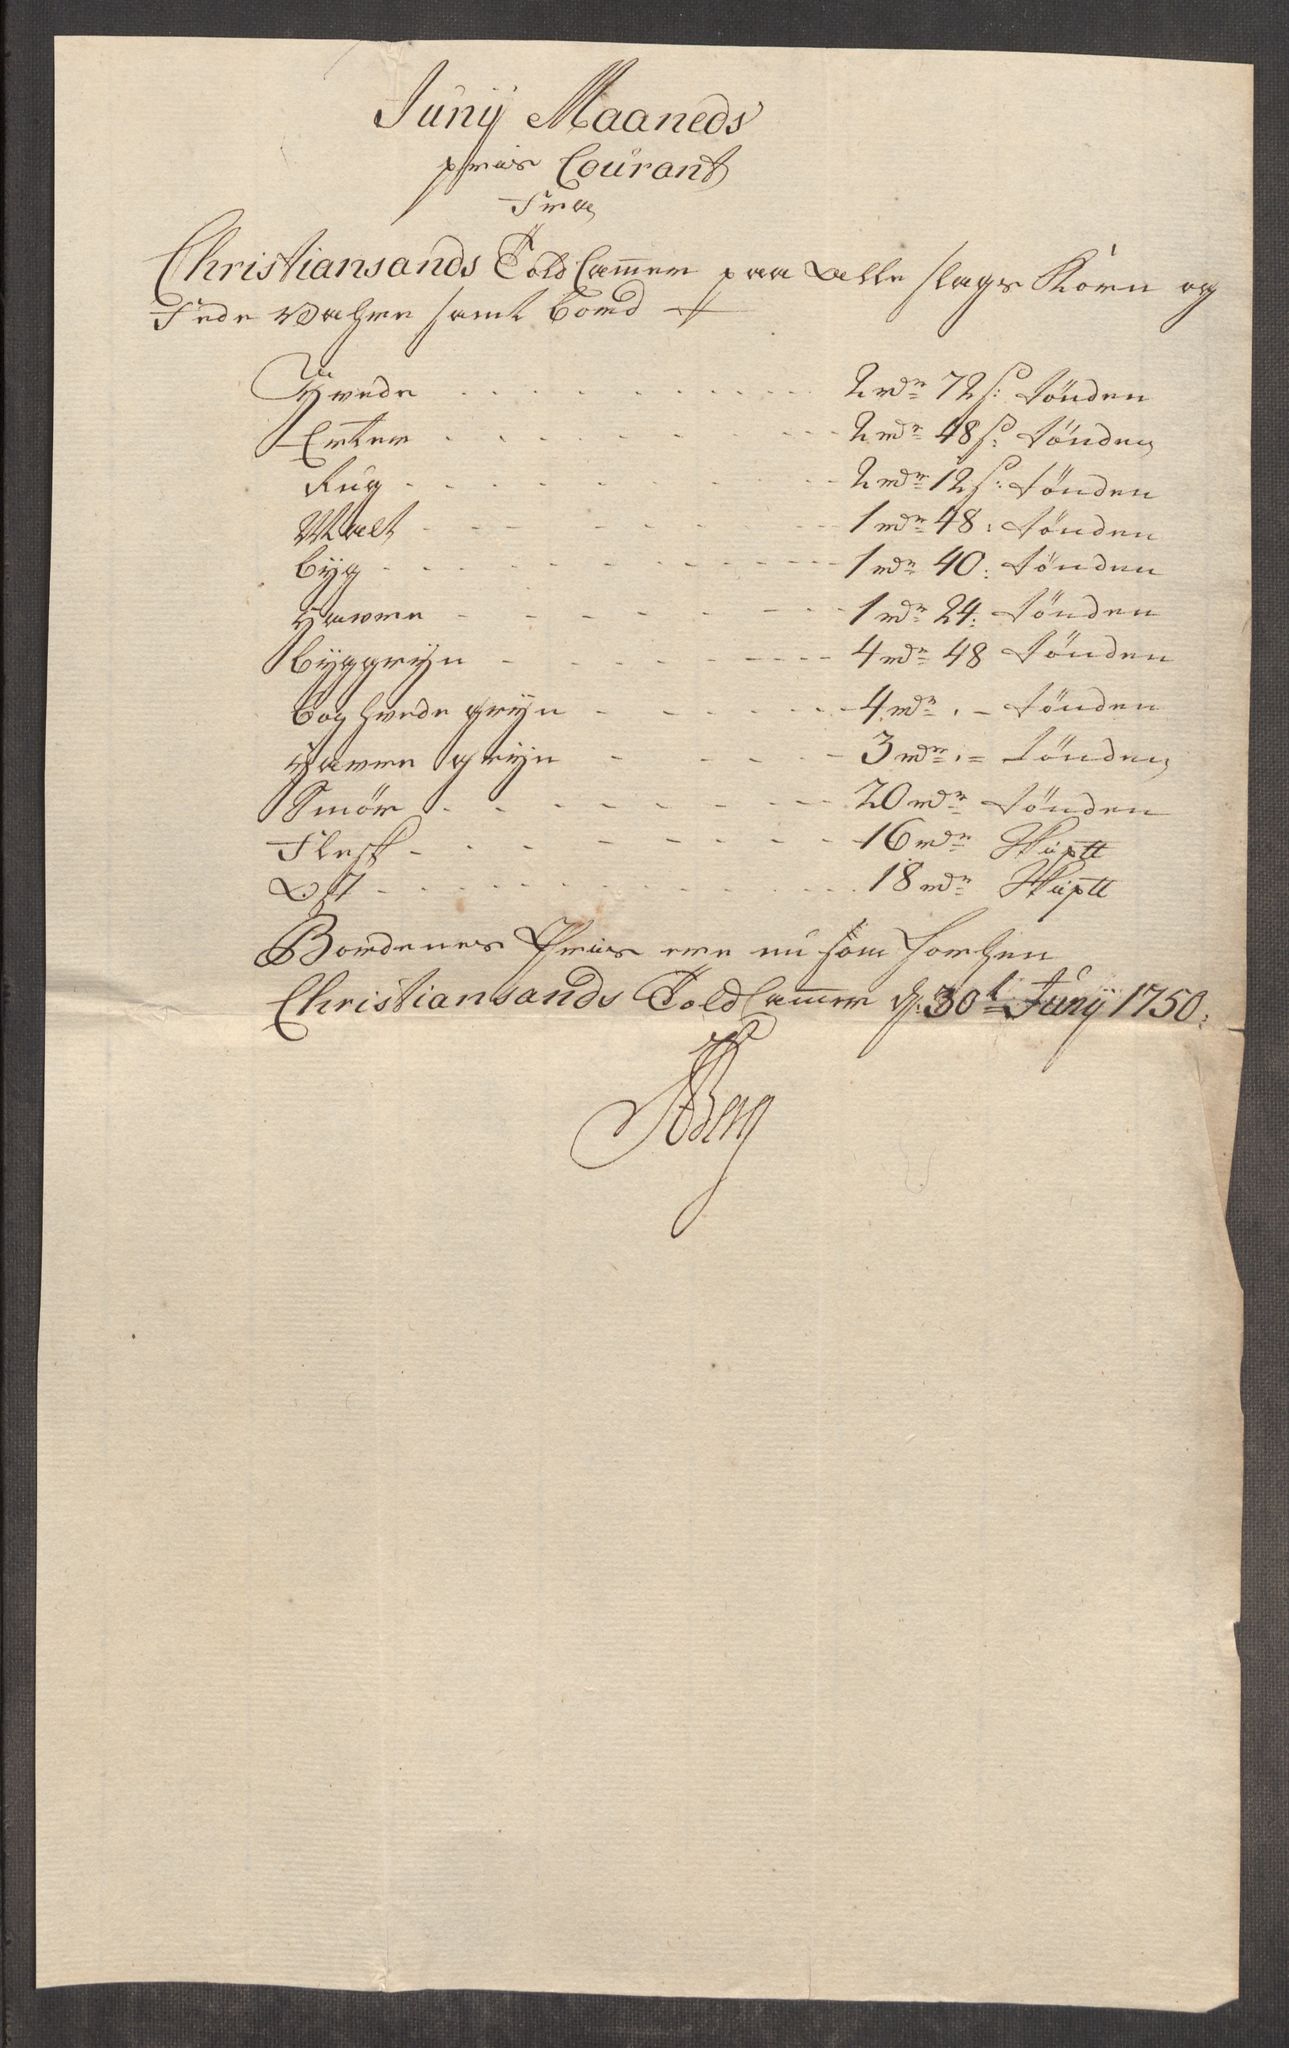 Junij Maaneds
preis Courant
Fra
Christiansands Told Camer paa Alle slags Korn og
Fede Vahre samt bord
Hvede . . . . . . . . . . . 2 rdr 72 s: Tönden
Erter . . . . . . . . . . . 2 rdr 48 s: Tönden
Rug . . . . . . . . . . . 2 rdr 12 s: Tönden
Malt . . . . . . . . . . . 1 rdr 48: Tönden
Byg . . . . . . . . . . . 1 rdr 40: Tönden
Havre . . . . . . . . . . . 1 rdr 24: Tönden
Byggrÿn . . . . . . . . . . . 4 rdr 48 Tönden
Boghvede grÿn . . . . . . . 4 rdr . - Tönden
Havre grÿn . . . . . . . 3 rdr . = Tönden
Smör . . . . . . . . . 20 rdr Tönden
Flesk . . . . . . . . . 16 rdr Skiptt
Ost . . . . . . . . . . . 18 rdr Skiptt
Bordenes Preis ere nu som forhen
Christiansands Told Camer d: 30t Junij 1750:
Berg